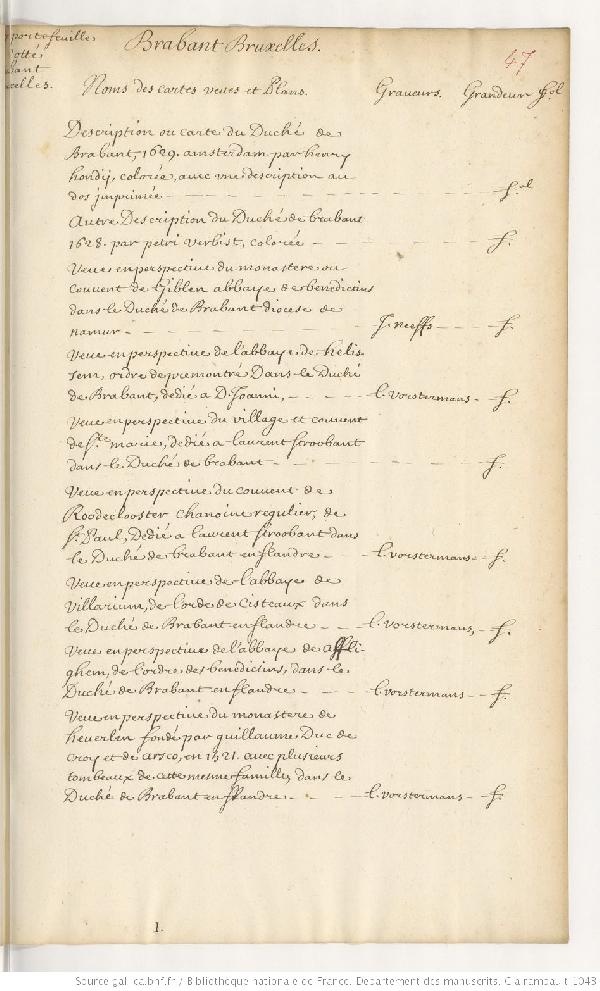 portefeuille
cotté
Brabant Bruxelles.
47
Noms des cartes veues et Plans. Graveurs. Grandeur fol
Description ou carte du Duché de
Brabant, 1629. amsterdam par henry
hondij, colorée, avec une description au
dos jmprimée - - - f.ol
Autre Description du Duché de brabant
1628. par petri verbist, colorée - - f.
Veue en perspective du monastere ou
couvent de Giblen abbaye de benedictins
dans le Duché de Brabant diocese de
namur - - - J. neeffs - - - f.
Veue en perspective de l'abbaye de helis
sem, ordre de premontré Dans le Duché
de Brabant, dédié a D. Joanni, - - - l. vorstermans - f.
Veue en perspective du village et couvent
de Ste marie, dedié a laurent stroobant
dans le Duché de brabant - - - f.
Veue en perspective du couvent de
Roodeclooster chanoine regulier, de
St. Paul, Dedié a laurent stroobant dans
le Duché de brabant en flandre - - l. vorstermans - f.
Veue en perspective de l'abbaye de
villarium, de l'orde de Cisteaux dans
le Duché de Brabant en flandre - - l. vorstermans, - f.
Veue en perspective de l'abbaye de affli-
ghem, de l'ordre des benedictins, dans le
Duché de Brabant en flandre - - - l. vorstermans - f.
Veue en perspective du monastere de
heverlen fondé par guillaume Duc de
Croy et de arsco, en 1521. avec plusieurs
tombeaux de cette mesme famille, dans le
Duché de Brabant en flandre - - - l. vorstermans - - f.
1.
Source gallica.bnf.fr / Bibliothèque nationale de France. Département des manuscrits. Clairambault 1048